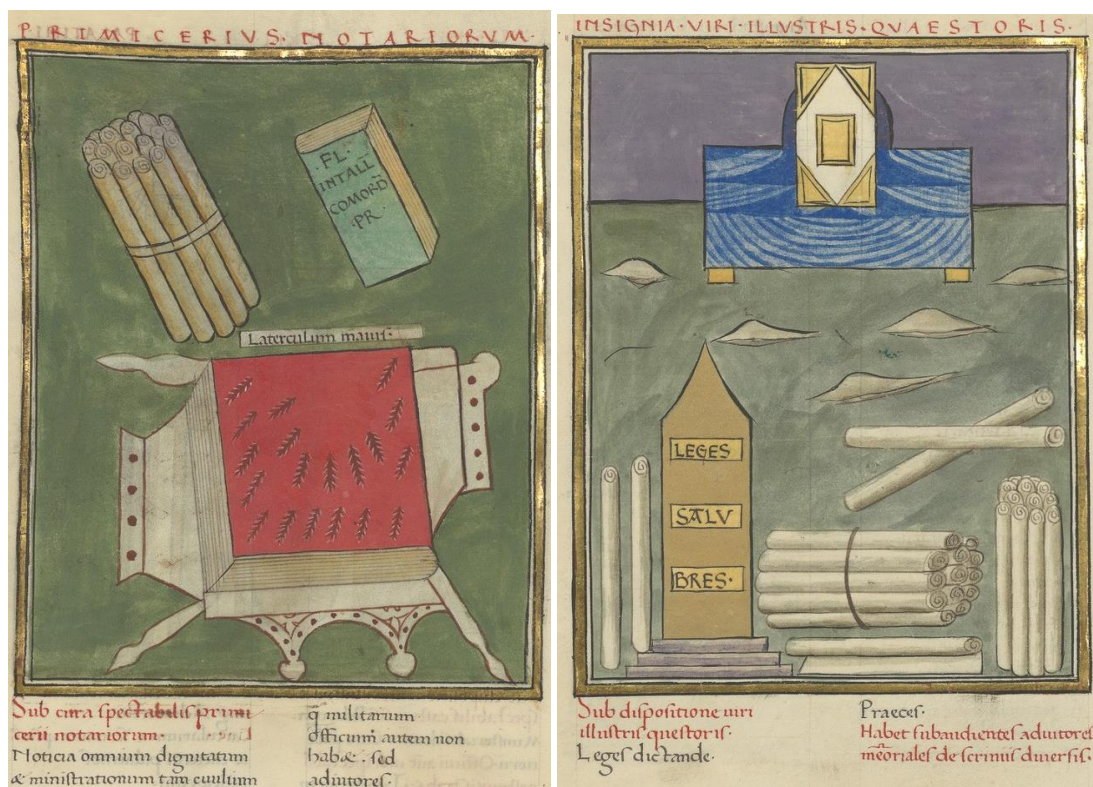 PRIMICERIVS·NOTARIORVM·
FL·
INTALL
COMORD
·PR·
Laterculum maius·
Sub cura spectabilis primi
cerii notariorum·
Noticia omnium dignitatum
æ ministrationum tam ciuilium
q̄ militarum
Officium autem non
habæ· sed
adiutores·
INSIGNIA·VIRI·ILLVSTRIS·QVAESTORIS·
LEGES
SALV
BRES·
Sub dispositione uiri
illustris questoris·
Leges dictande·
Praeces·
Habet subaudientes adiutores
memoriales de scriniis diuersis·